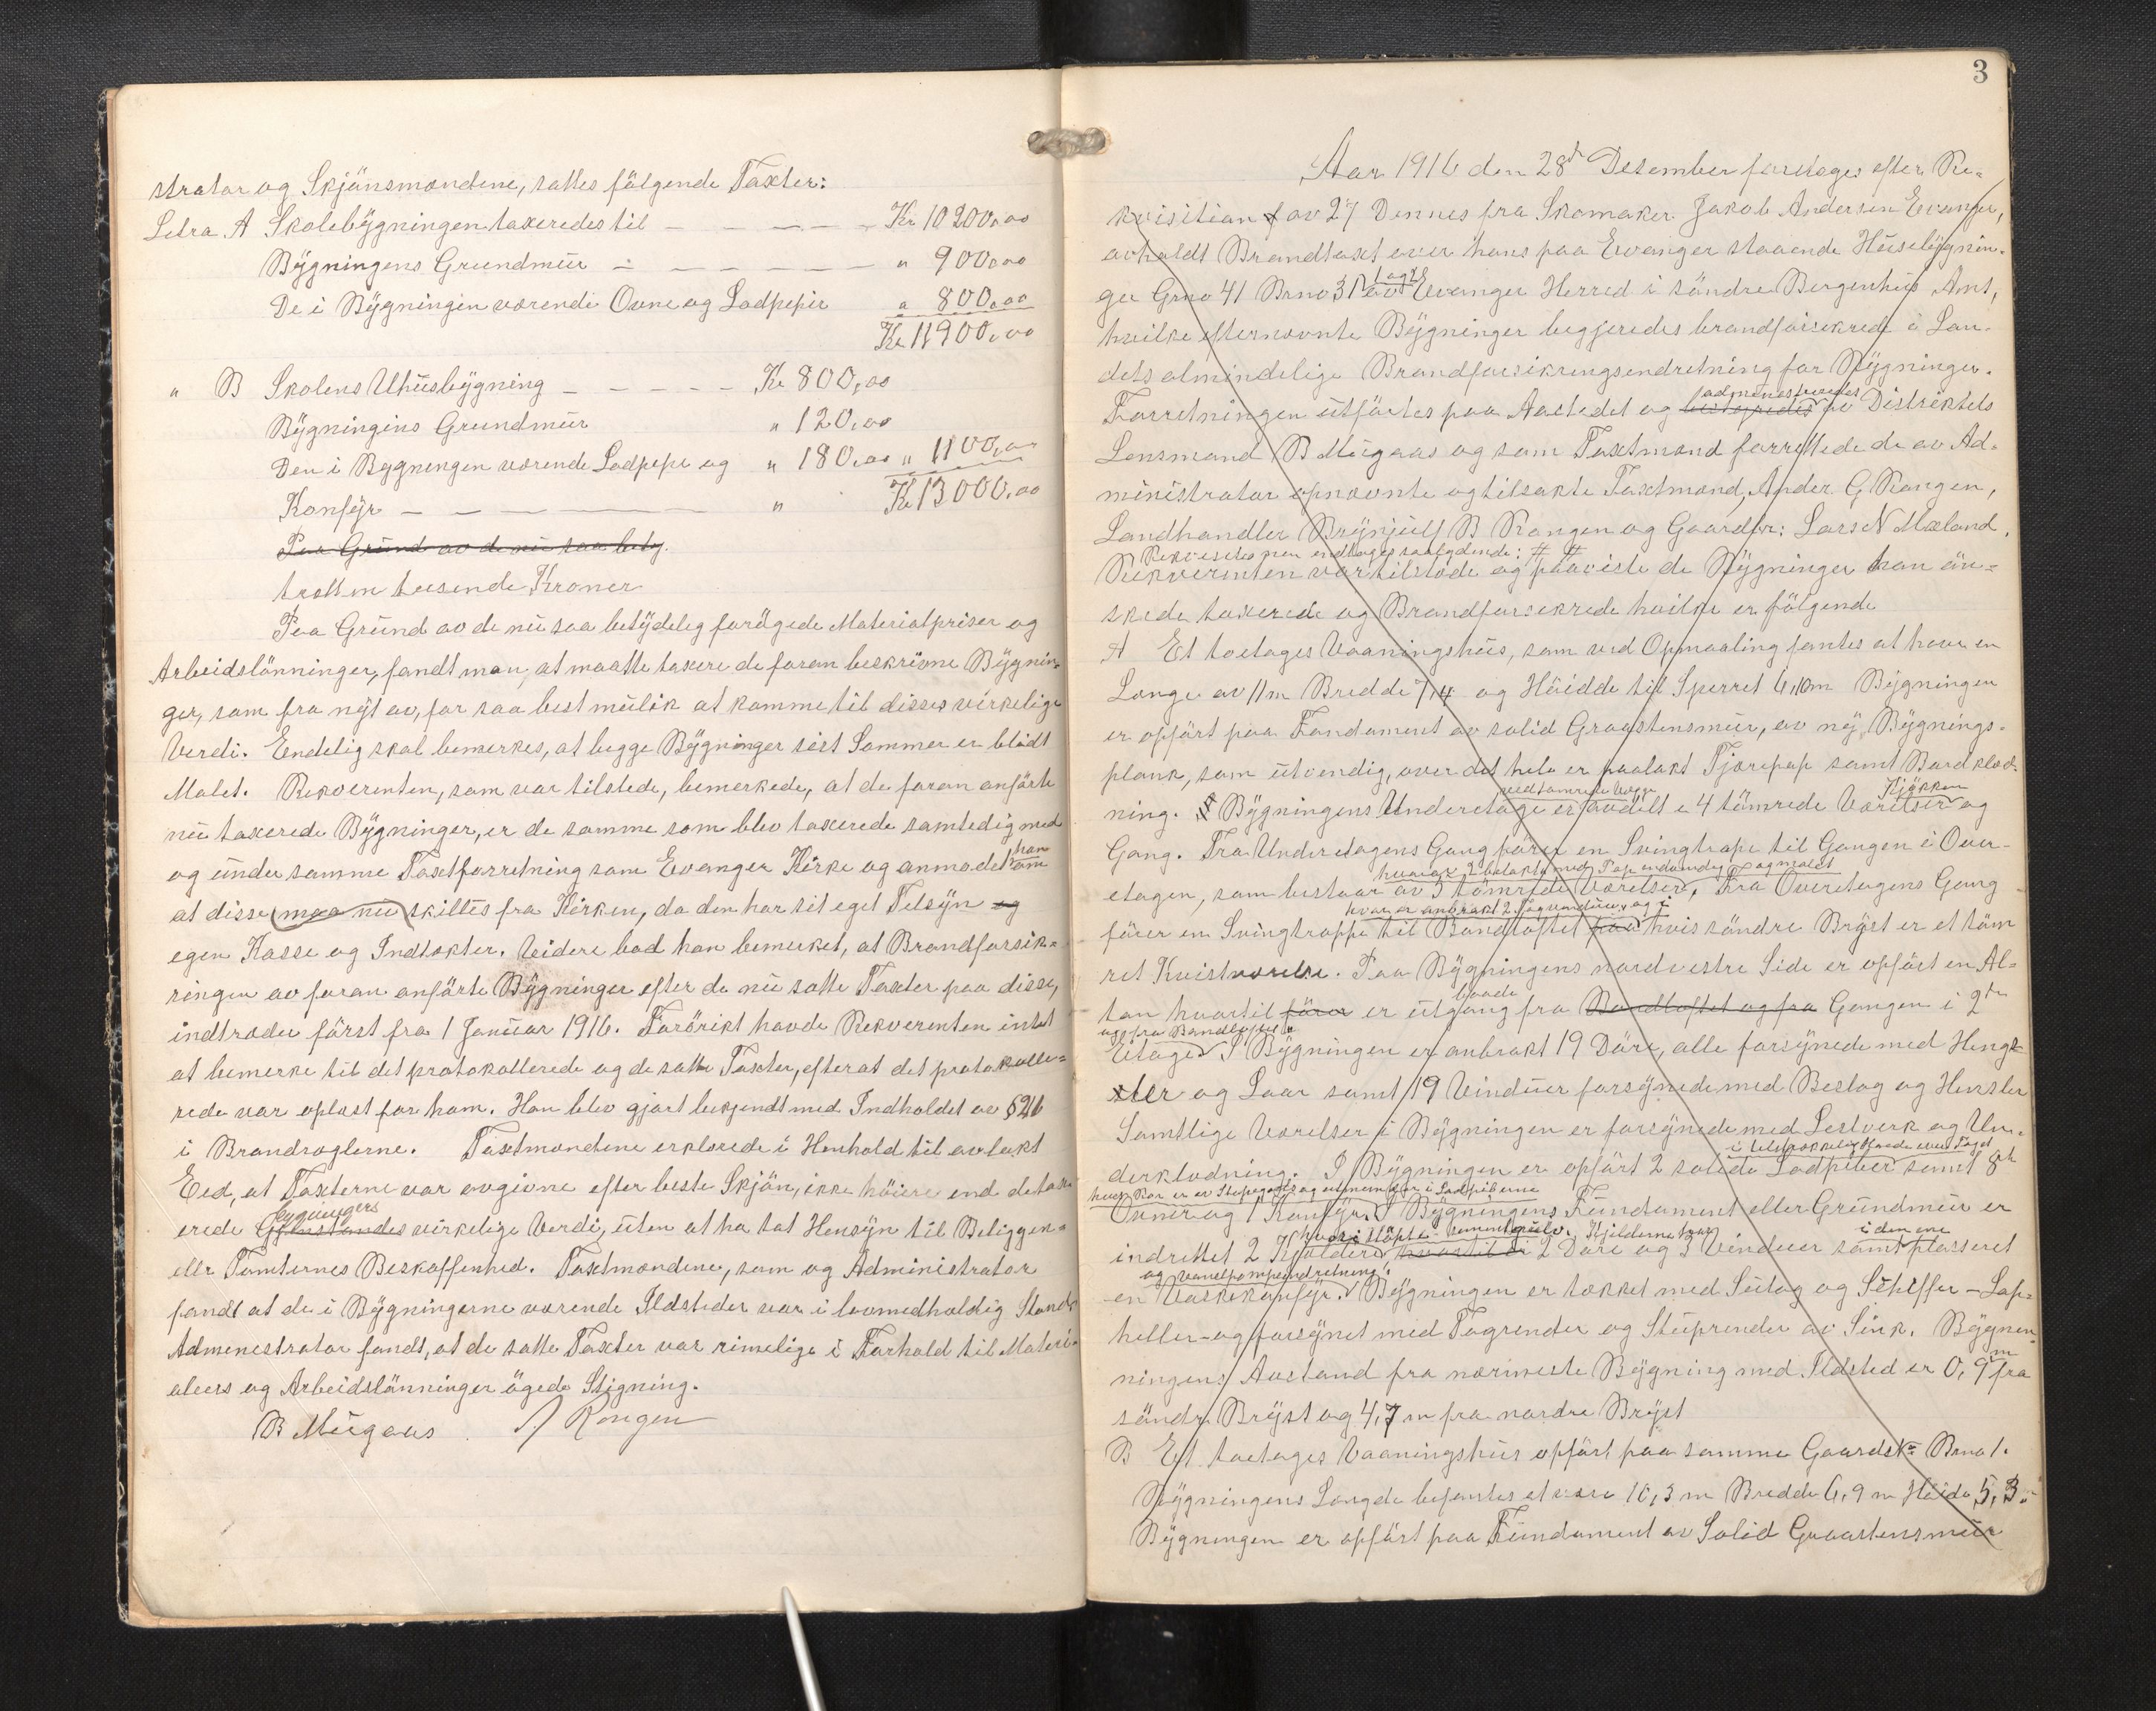 strator og Skjönsmændene, sattes fölgende Taxter:
Litra A Skolebygningen taxeredes til — — — — Kr 10200,00
Bygningens Grundmur — — — — — — " 900,00
De i Bygningen værende Ovne og Lodpiper " 800,00
Kr 11900,00
" B Skolens Uthusbygning — — — — Kr 800,00
Bygningens Grundmur " 120,00
Den i Bygningen værende Lodpipe og " 180,00 " 1100,00
Komfyr — — — — " Kr 13000,00
Paa Grund av de nu saa bety.
tretten tusende Kroner
Paa Grund av de nu saa betydelig forögede Materialpriser og
Arbeidslönninger, fandt man, at maatte taxere de foran beskrivne Bygnin-
ger, som fra nyt av, for saa best mulik at komme til disses virkelige
Verdi. Endelig skal bemerkes, at begge Bygninger sist Sommer er blådt
Malet. Rekverenten, som var tilstede, bemerkede, at de foran anförte
nu taxerede Bygninger, er de samme som blev taxerede samtedig med
og under samme Taxtforretning som Evanger Kirke og anmodet han om
at disse maa nu skilles fra Kirken, da den har sit eget Tilsyn og
egen Kasse og Indtækter. Videre bad han bemerket, at Brandforsik-
ringen av foran anförte Bygninger efter de nu satte Taxter paa disse,
indtræder först fra 1 Januar 1916. Forörikt havde Rekverenten intet
at bemerke til det protokollerede og de satte Taxter, efterat det protokolle-
rede var oplæst for ham. Han blev gjort bekjendt med Indholdet av § 26
i Brandreglerne. Taxtmændene erklærede i Henhold til avlakt
Eed, at Taxterne var avgivne efter beste Skjön, ikke höiere end de tax-
bygningers
erede Gjenstandes virkelige Verdi, uten at ha tat Hensyn til Beliggen-
eller Tomternes Beskaffenhed. Taxtmændene, som og Administrator
fandt at de i Bygningerne værende Ildsteder var i lovmedholdig Stand.
Admenestrator fandt, at de satte Taxter var rimelige i Forhold til Materi-
alers og Arbeidslönninger ögede Stigning.
B Mugaas A Rongen
3
Aar 1916 den 28de Desember foretoges efter Re-
kvisition av 27 Dennes fra Skomaker Jakob Andersen Evanger,
avholdt Brandtaxt over hans paa Evanger staaende Husebygnin-
1 og 28
ger Grno 41 Brno 31 av Evanger Herred i söndre Bergenhus Amt,
hvilke efternævnte Bygninger begjæredes brandforsikrede i Lan-
dets almindelige Brandforsikringsendretning for Bygninger.
admenestreredes
Forretningen utförtes paa Aastedet og av Distriktets
Lensmand B Mugaas og som Taxtmænd forrettede de av Ad-
ministrator opnævnte og tilsakte Taxtmænd, Ander G Rongen,
Landhandler Brynjulf B Rongen og Gaardbr: Lars N Mæland.
Rekvesitionen endtoges saalydende: # #
Rekverenten var tilstede og paaviste de Bygninger han ön-
skede taxerede og Brandforsekrede hvilke er fölgende
A Et toetages Vaaningshus, som ved Opmaaling fantes at have en
Længe av 11 m Bredde 7,4 og Höidde til Sperret 6,10 m Bygningen
er opfört paa Fundament av solid Graastensmur, av ny Bygnings-
plank, som utvendig, over det hele er paalakt Tjærepap samt Bordklæd-
ved tömrede Vegge Kjökken
ning. Bygningens Underetage er avdelt i 4 tömrede Værelser og
Gang. Fra Underetagens Gang förer en Svingtrape til Gangen i Over-
hvorav 2 belakte med Pap endvendig og malet
etagen, som bestaar av 5 tömrede Værelser. Fra Overetagens Gang
hvor er anbrakt 2 Fagvinduer, og i
förer en Svingtrappe til Bandloftet paa hvis söndre Bryst er et töm
ret Kvistværelse. Paa Bygningens nordvestre Side er opfört en Al-
baade
tan hvortil förer er utgang fra Bandloftet og fra Gangen i 2den
og fra Bandloftet
Etage. I Bygningen er anbrakt 19 Döre, alle forsynede med Hengs-
ler og Laas samt 19 Vinduer forsynede med Beslag og Hensler
Samtlige Værelser i Bygningen er forsynede med Lestverk og Un-
i tilstrækkelig Höide over Taget
derklædning. I Bygningen er opfört 2 solide Lodpiber samt 8
Ovner og 1 Komfyr. I Bygningens Fundament eller Grundmur er
hvori Stöpte Cementgulv. Kjelderne har i den ene
indrettet 2 Kjeldere, hvortil er 2 Döre og 3 Vinduer samt plasseret
og vandpompeindretning
en Vaskekomfyr. Bygningen er tækket med Sutag og Schiffer – Lap-
heller – og forsynet med Tagrender og Stuprender av Sink. Bygnen-
ningens Avstand fra nærmeste Bygning med Ildsted er 0,9 m fra
söndre Bryst og 4,7 m fra nordre Bryst
B Et toetages Vaaningshus opfört paa samme Gaards Brno 1.
Bygningens Længde befantes at være 10,3 m Bredde 6,9 m Höide 5,3.
Bygningen er opfört paa Fundament av Solid Graastensmur